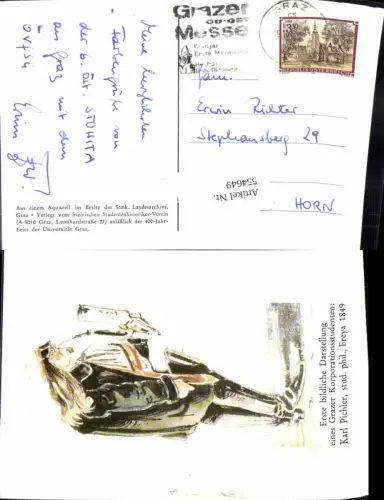 Meine herzlichsten
Farbengrüße von
der 6. Öst. STUHITA
in Graz mit dem
ÖVfStG
Aus einem Aquarell im Besitz des Stmk. Landesarchivs,
Graz • Verlegt vom Steirischen Studentenhistoriker-Verein
(A-8010 Graz, Leonhardstraße 27) anläßlich der 400-Jahr-
Feier der Universität Graz.
Grazer
Messe
GRAZ
REPUBLIK ÖSTERREICH
Erwin Richter
Stephansberg 29
Artikel Nr.
554649
HORN
Erste bildliche Darstellung
eines Grazer Korporationsstudenten:
Karl Pichler, stud. phil., Freya 1849